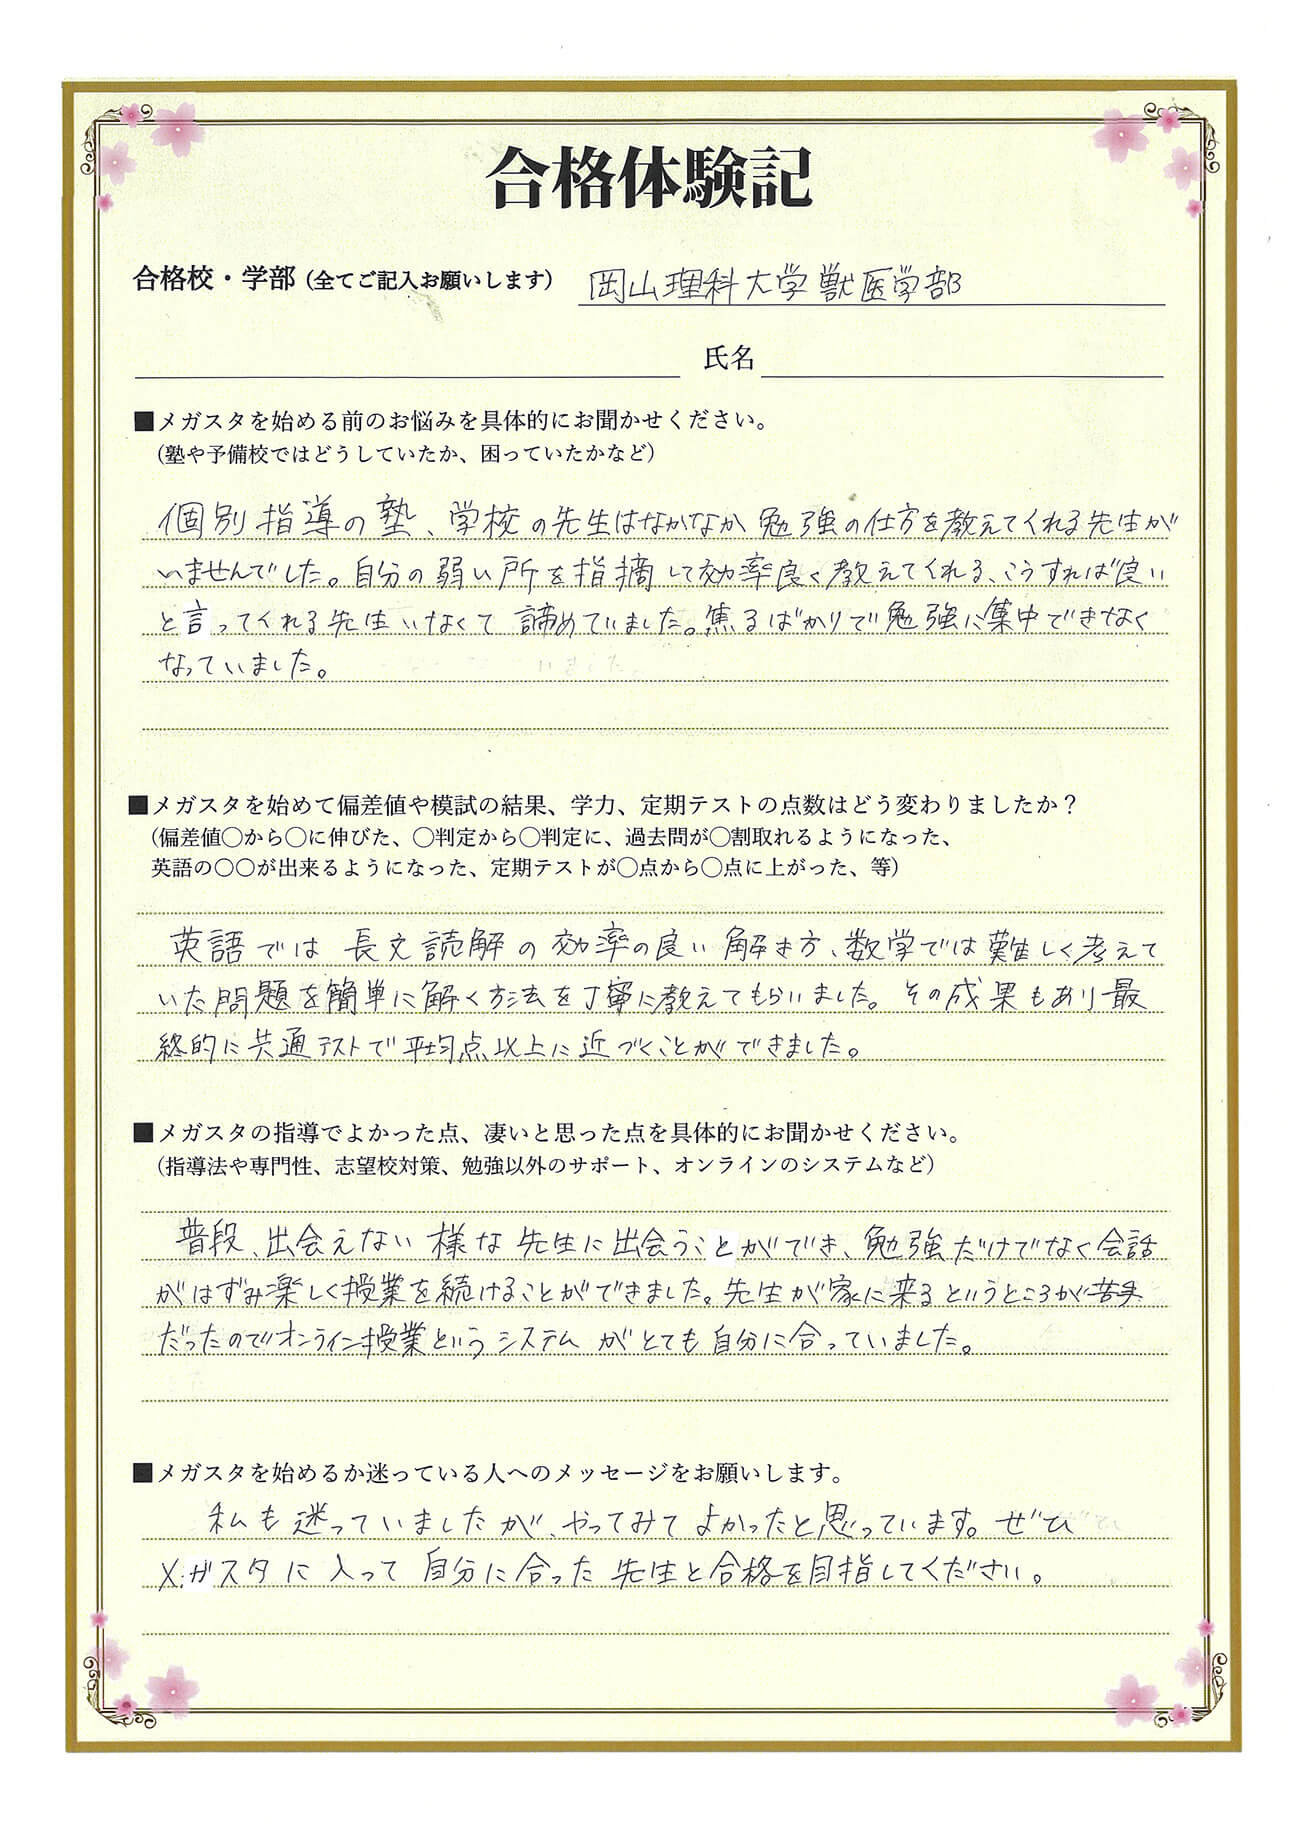 合格体験記
合格校・学部（全てご記入お願いします） 岡山理科大学獣医学部
氏名
■メガスタを始める前のお悩みを具体的にお聞かせください。
（塾や予備校ではどうしていたか、困っていたかなど）
個別指導の塾、学校の先生はなかなか勉強の仕方を教えてくれる先生が
いませんでした。自分の弱い所を指摘して効率良く教えてくれる、こうすれば良い
と言ってくれる先生いなくて諦めていました。焦るばかりで勉強に集中できなく
なっていました。
■メガスタを始めて偏差値や模試の結果、学力、定期テストの点数はどう変わりましたか？
（偏差値〇から〇に伸びた、〇判定から〇判定に、過去問が〇割取れるようになった、
英語の〇〇が出来るようになった、定期テストが〇点から〇点に上がった、等）
英語では長文読解の効率の良い解き方、数学では難しく考えて
いた問題を簡単に解く方法を丁寧に教えてもらいました。その成果もあり最
終的に共通テストで平均点以上に近づくことができました。
■メガスタの指導でよかった点、凄いと思った点を具体的にお聞かせください。
（指導法や専門性、志望校対策、勉強以外のサポート、オンラインのシステムなど）
普段、出会えない様な先生に出会うことができ、勉強だけでなく会話
がはずみ楽しく授業を続けることができました。先生が家に来るというところが苦手
だったのでオンライン授業というシステムがとても自分に合っていました。
■メガスタを始めるか迷っている人へのメッセージをお願いします。
私も迷っていましたが、やってみてよかったと思っています。ぜひ
メガスタに入って自分に合った先生と合格を目指してください。